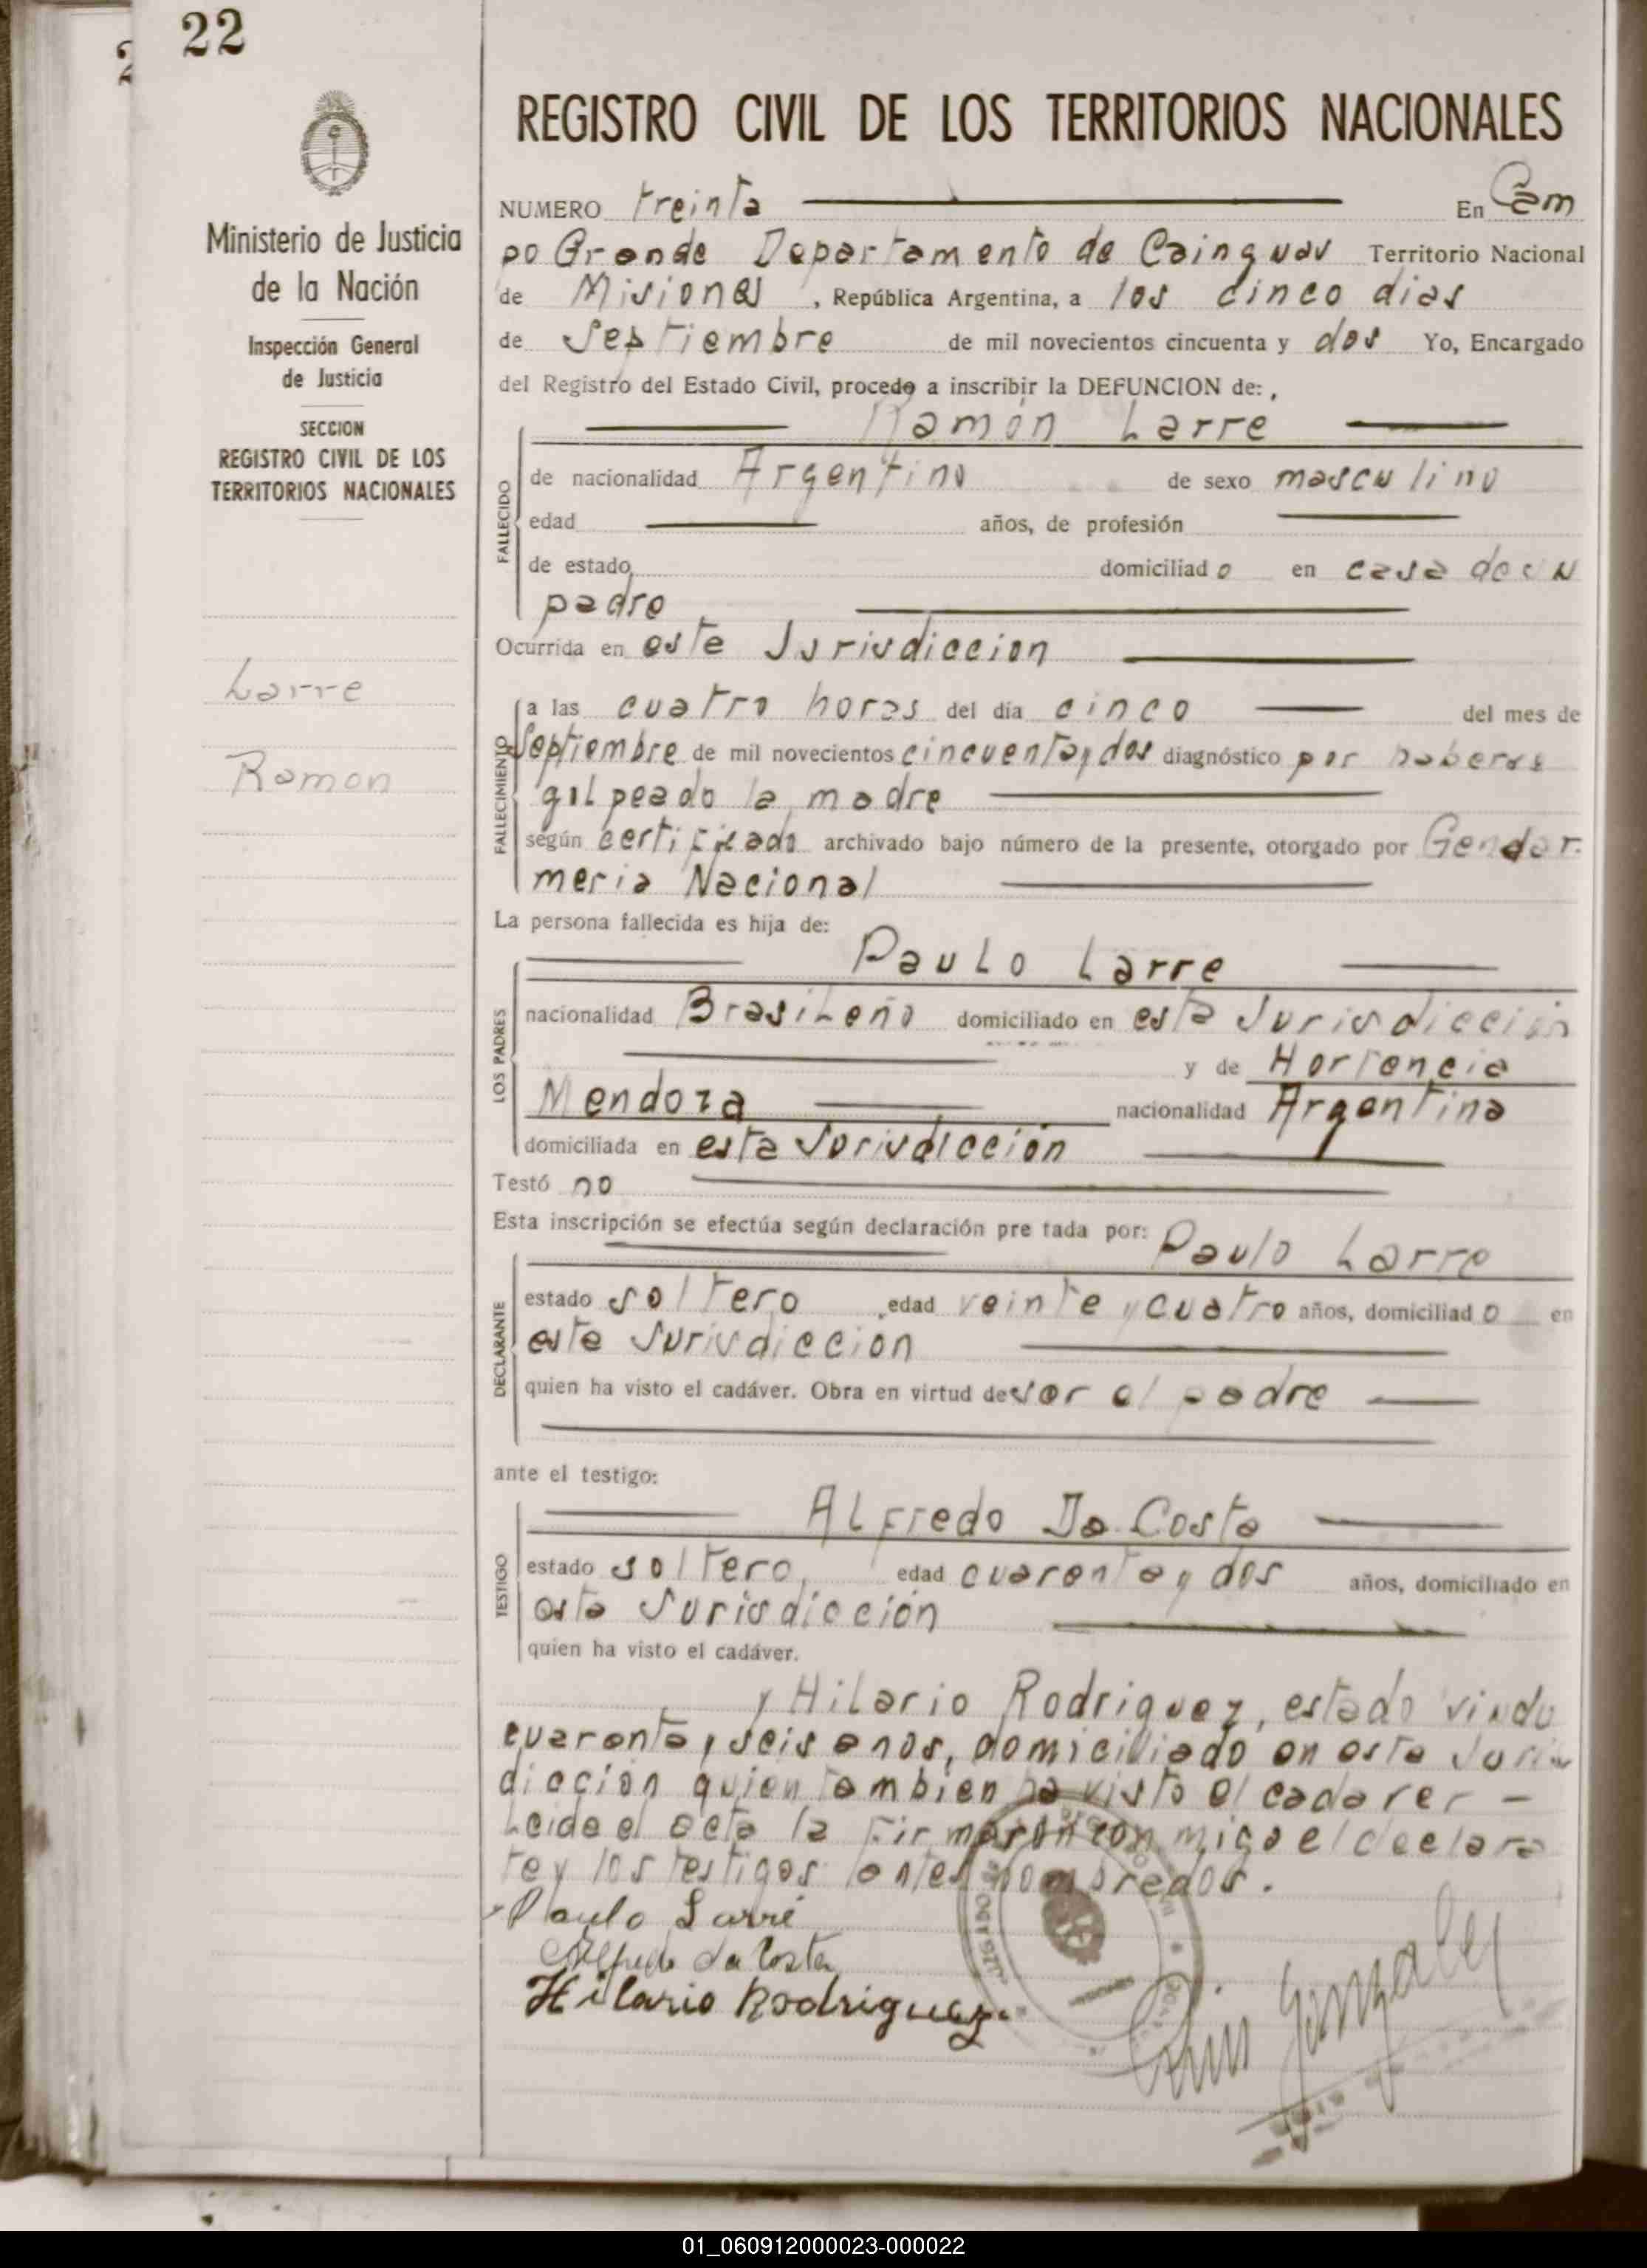 22
Ministerio de Justicia
de la Nación
Inspección General
de Justicia
SECCION
REGISTRO CIVIL DE LOS
TERRITORIOS NACIONALES
Larre
Ramon
REGISTRO CIVIL DE LOS TERRITORIOS NACIONALES
NUMERO treinta En Cam
po Grande Departamento de Cainguas Territorio Nacional
de Misiones , República Argentina, a los cinco dias
de Septiembre de mil novecientos cincuenta y dos Yo, Encargado
del Registro del Estado Civil, procedo a inscribir la DEFUNCION de:
Ramón Larre
FALLECIDO
de nacionalidad Argentino de sexo masculino
edad años, de profesión
de estado domiciliado en casa de su
padre
Ocurrida en este Jurisdiccion
FALLECIMIENTO
a las cuatro horas del día cinco del mes de
Septiembre de mil novecientos cincuenta y dos diagnóstico por haberse
golpeado la madre
según certificado archivado bajo número de la presente, otorgado por Gendar
meria Nacional
La persona fallecida es hija de:
Paulo Larre
LOS PADRES
nacionalidad Brasileño domiciliado en esta Jurisdicción
y de Hortencia
Mendoza nacionalidad Argentina
domiciliada en esta Jurisdicción
Testó no
Esta inscripción se efectúa según declaración pre tada por: Paulo Larre
DECLARANTE
estado soltero edad veinte y cuatro años, domiciliado en
este Jurisdicción
quien ha visto el cadáver. Obra en virtud de ser el padre
ante el testigo:
Alfredo Da Costa
TESTIGO
estado soltero, edad cuarenta y dos años, domiciliado en
esta Jurisdicción
quien ha visto el cadáver.
y Hilario Rodriguez, estado viudo
cuarenta y seis anos, domiciliado en esta Juris
dicción quien tambien ha visto el cadaver -
Leida el acta la firmaron con migo el declara
te y los testigos antes nombrados.
Paulo Larré
Alfredo da Costa
Hilario Rodriguez
Luis Gonzalez
01_060912000023-000022